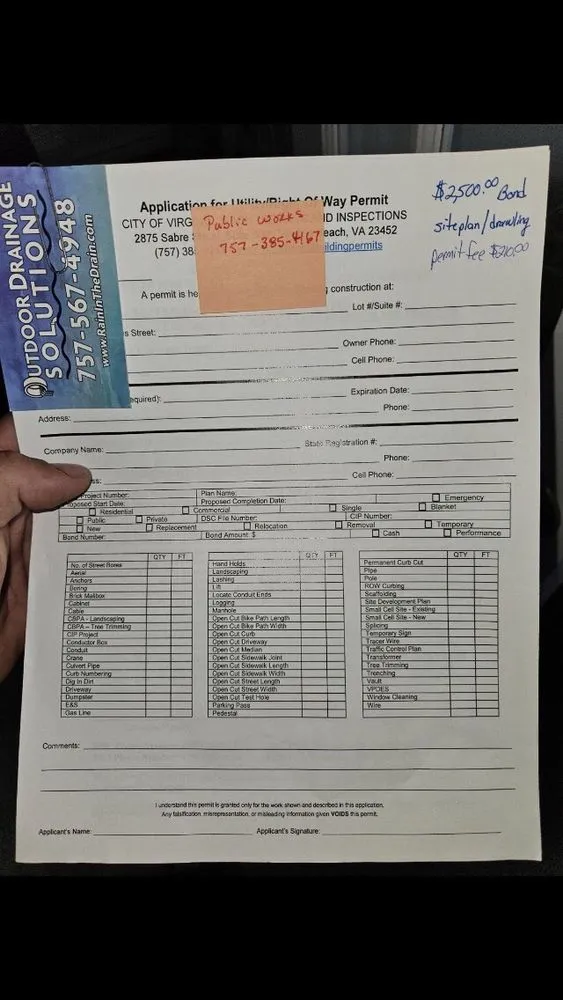 OUTDOOR DRAINAGE
SOLUTIONS
757-567-4948
www.RainInTheDrain.com
Application for Utility/Right Of Way Permit
CITY OF VIRG
ND INSPECTIONS
2875 Sabre
each, VA 23452
(757) 38
ildingpermits
Public works
757-385-4167
$2,500.00 Bond
siteplan/drawling
permit fee $210.00
A permit is he
g construction at:
Lot #/Suite #:
s Street:
Owner Phone:
Cell Phone:
equired):
Expiration Date:
Address:
Phone:
Company Name:
State Registration #:
Phone:
ss:
Cell Phone:
Project Number:
Plan Name:
Emergency
oposed Start Date:
Proposed Completion Date:
Residential
Commercial
Single
Blanket
Public
Private
DSC File Number:
CIP Number:
New
Replacement
Relocation
Removal
Temporary
Bond Number:
Bond Amount: $
Cash
Performance
QTY FT
No. of Street Bores
Aerial
Anchors
Boring
Brick Mailbox
Cabinet
Cable
CBPA - Landscaping
CBPA – Tree Trimming
CIP Project
Conductor Box
Conduit
Crane
Culvert Pipe
Curb Numbering
Dig In Dirt
Driveway
Dumpster
E&S
Gas Line
QTY FT
Hand Holds
Landscaping
Lashing
Lift
Locate Conduit Ends
Logging
Manhole
Open Cut Bike Path Length
Open Cut Bike Path Width
Open Cut Curb
Open Cut Driveway
Open Cut Median
Open Cut Sidewalk Joint
Open Cut Sidewalk Length
Open Cut Sidewalk Width
Open Cut Street Length
Open Cut Street Width
Open Cut Test Hole
Parking Pass
Pedestal
QTY FT
Permanent Curb Cut
Pipe
Pole
ROW Curbing
Scaffolding
Site Development Plan
Small Cell Site - Existing
Small Cell Site - New
Splicing
Temporary Sign
Tracer Wire
Traffic Control Plan
Transformer
Tree Trimming
Trenching
Vault
VPDES
Window Cleaning
Wire
Comments:
I understand this permit is granted only for the work shown and described in this application.
Any falsification, misrepresentation, or misleading information given VOIDS this permit.
Applicant's Name:
Applicant's Signature: